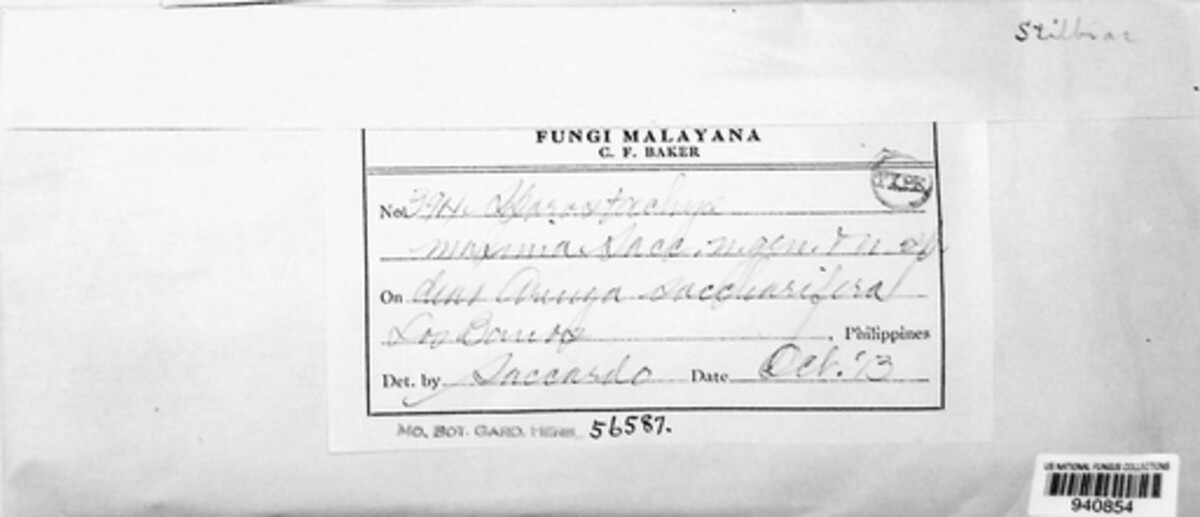 Stilbiac
FUNGI MALAYANA
C. F. BAKER
TYPE
No. 394.
maxima Sacc. n. gen. & n. sp.
On dead Arenga saccharifera
Los Banos, Philippines
Det. by Saccardo Date Oct. '13
MO. BOT. GARD. HERB. 56587.
US NATIONAL FUNGUS COLLECTIONS
940854